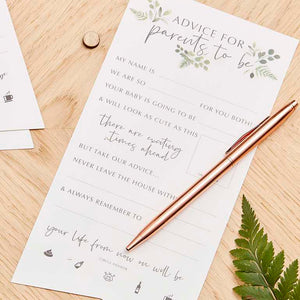 ADVICE FOR
parents to be
MY NAME IS
WE ARE SO
FOR YOU BOTH!
YOUR BABY IS GOING TO BE
& WILL LOOK AS CUTE AS THIS
there are exciting
times ahead!
BUT TAKE OUR ADVICE...
NEVER LEAVE THE HOUSE WITH
& ALWAYS REMEMBER TO
your life from now on will be